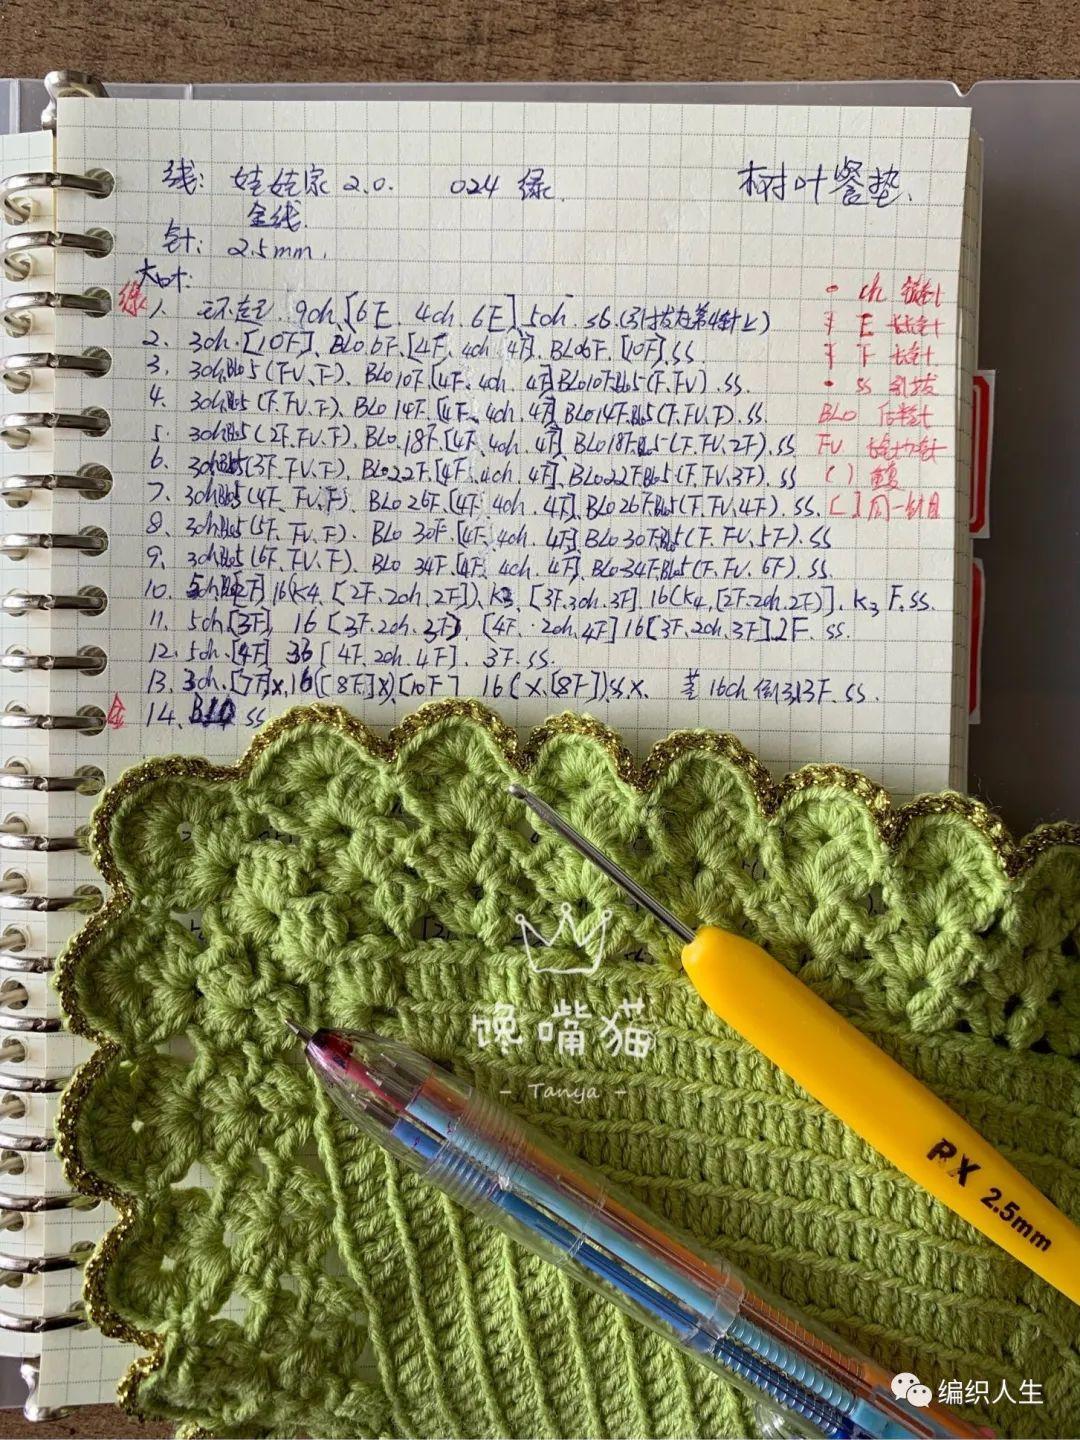 线: 娃娃家 2.0. 024 绿. 树叶餐垫.
金线.
针: 2.5mm.
大叶:
绿 1. 环起 9ch.[6E. 4ch. 6E] 5ch. ss.(引拔在第4针上)
2. 3ch.[10F]. BLO6F.[4F. 4ch. 4F]. BLO6F. [10F].ss.
3. 3ch.BLO5(FV.F). BLO10F.[4F. 4ch. 4F]BLO10F.BLO5(F.FV).ss.
4. 3ch.BLO5(F.FV.F). BLO14F.[4F. 4ch. 4F]BLO14F.BLO5(F.FV.F).ss.
5. 3ch.BLO5(2F.FV.F). BLO.18F.[4F.4ch.4F]BLO18F.BLO5(F.FV.2F).ss
6. 3ch.BLO5(3F.FV.F). BLO22F.[4F.4ch.4F].BLO22F.BLO5(F.FV.3F).ss
7. 3ch.BLO5(4F.FV.F). BLO26F.[4F.4ch.4F].BLO26F.BLO5(F.FV.4F).ss.
8. 3ch.BLO5(5F.FV.F). BLO 30F.[4F.4ch.4F]BLO30F.BLO5(F.FV.5F).ss
9. 3ch.BLO5(6F.FV.F). BLO 34F.[4F.4ch.4F].BLO34F.BLO5(F.FV.6F).ss.
10. 16(K4.[2F.2ch.2F]).K3.[3F.3ch.3F].16(K4.[2F.2ch.2F)].K3 F.ss.
11. 5ch.[3F]. 16(3F.2ch.3F). [4F.2ch.4F]16[3F.2ch.3F].2F.ss.
12. 5ch.[4F] 33[4F.2ch.4F]. 3F.ss.
13. 3ch.[7F]X.16([8F]X)[10F] 16(X.[8F])ss x. 茎16ch 倒引33F.ss.
金 14. ss
• ch 锁针
E 长长针
F 长针
• ss 引拔
BLO 后半针
FV 长针加针
( ) 重复
[ ] 同一针目
馋嘴猫
- Tanya -
RX 2.5mm
编织人生